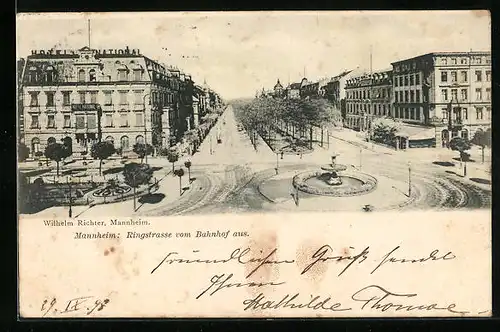 HOTEL NATIONAL
Wilhelm Richter, Mannheim.
Mannheim: Ringstrasse vom Bahnhof aus.
freundlichen Gruß sendet
Ihnen Mathilde Thomae
29 IX 98